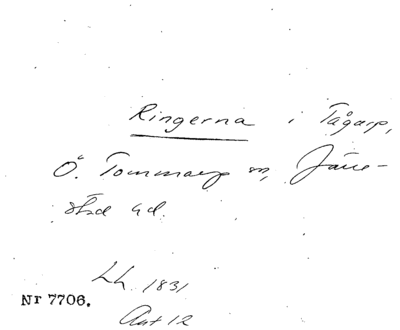 Ringerna i Tågarp,
Ö. Tommarp sn, Järre-
stad hd.
Lh. 1831
Nr 7706.
Akt 12